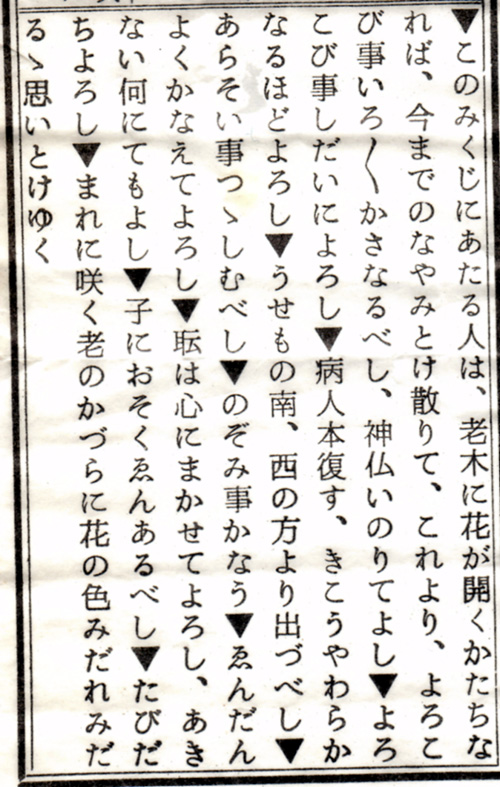 ▼このみくじにあたる人は、老木に花が開くかたちな
れば、今までのなやみとけ散りて、これより、よろこ
び事いろ〳〵かさなるべし、神仏いのりてよし▼よろ
こび事しだいによろし▼病人本復す、きこうやわらか
なるほどよろし▼うせもの南、西の方より出づべし▼
あらそい事つゝしむべし▼のぞみ事かなう▼ゑんだん
よくかなえてよろし▼耺は心にまかせてよろし、あき
ない何にてもよし▼子におそくゑんあるべし▼たびだ
ちよろし▼まれに咲く老のかづらに花の色みだれみだ
るゝ思いとけゆく